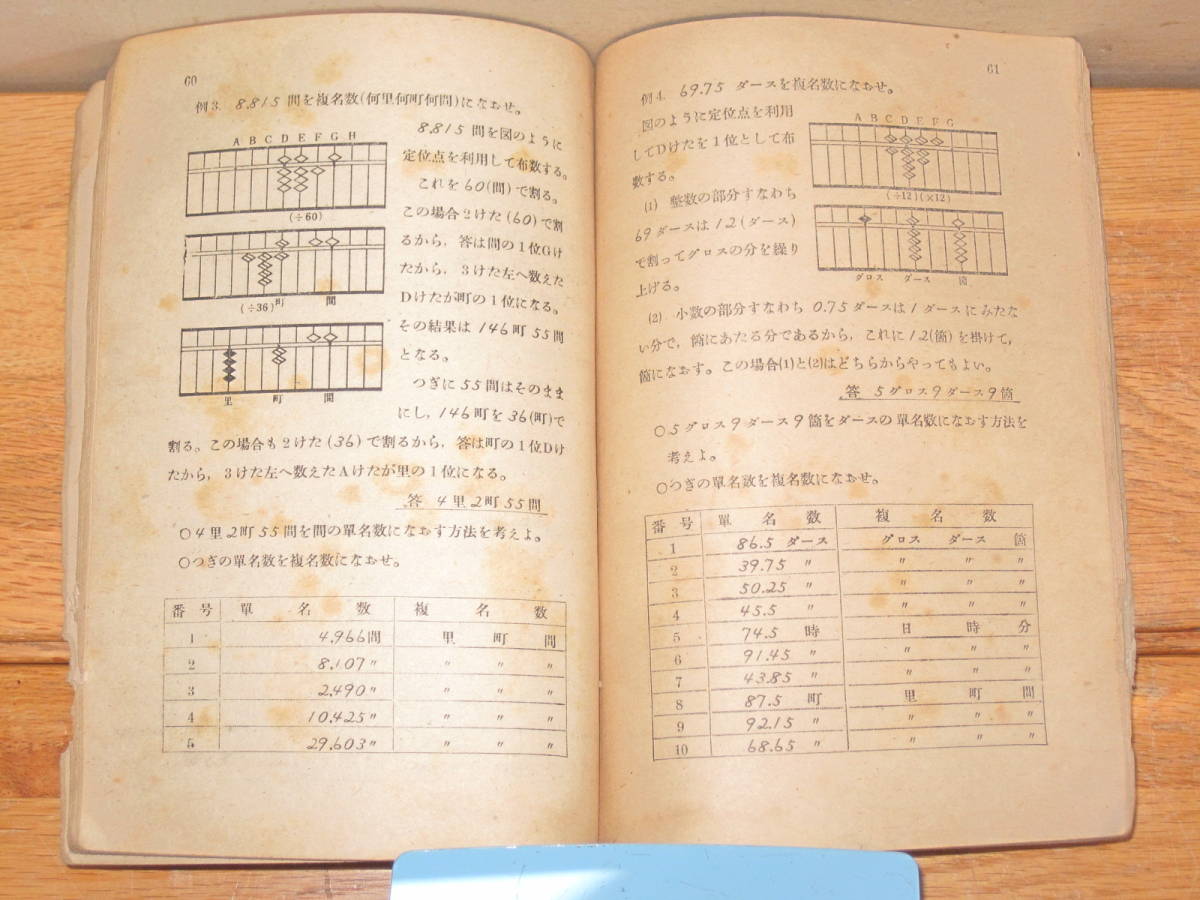 60
例3. 8,815 間を複名数(何里何町何間)になおせ。
A B C D E F G H
8,815 間を図のように
定位点を利用して布数する。
これを60(間)で割る。
(÷60)
この場合2けた(60)で割
るから，答は間の1位Gけ
たから，3けた左へ数えた
Dけたが町の1位になる。
(÷36) 町 間
その結果は146町55間
となる。
つぎに55間はそのまま
にし，146町を36(町)で
里 町 間
割る。この場合も2けた(36)で割るから，答は町の1位Dけ
たから，3けた左へ数えたAけたが里の1位になる。
答 4里2町55間
○4里2町55間を間の單名数になおす方法を考えよ。
○つぎの單名数を複名数になおせ。
番号 單名数 複名数
1 4,966間 里 町 間
2 8,107〃 〃 〃 〃
3 2,490〃 〃 〃 〃
4 10,425〃 〃 〃 〃
5 29,603〃 〃 〃 〃
61
例4. 69.75 ダースを複名数になおせ。
図のように定位点を利用
してDけたを1位として布
数する。
A B C D E F G
(÷12)(×12)
(1) 整数の部分すなわち
69ダースは12(ダース)
で割ってグロスの分を繰り
上げる。
グロス ダース 箇
(2) 小数の部分すなわち 0.75ダースは1ダースにみたな
い分で，箇にあたる分であるから，これに12(箇)を掛けて，
箇になおす。この場合(1)と(2)はどちらからやってもよい。
答 5グロス9ダース9箇
○5グロス9ダース9箇をダースの單名数になおす方法を
考えよ。
○つぎの單名数を複名数になおせ。
番号 單名数 複名数
1 86.5 ダース グロス ダース 箇
2 39.75 〃 〃 〃 〃
3 50.25 〃 〃 〃 〃
4 45.5 〃 〃 〃 〃
5 74.5 時 日 時 分
6 91.45 〃 〃 〃 〃
7 43.85 〃 〃 〃 〃
8 87.5 町 里 町 間
9 92.15 〃 〃 〃 〃
10 68.65 〃 〃 〃 〃